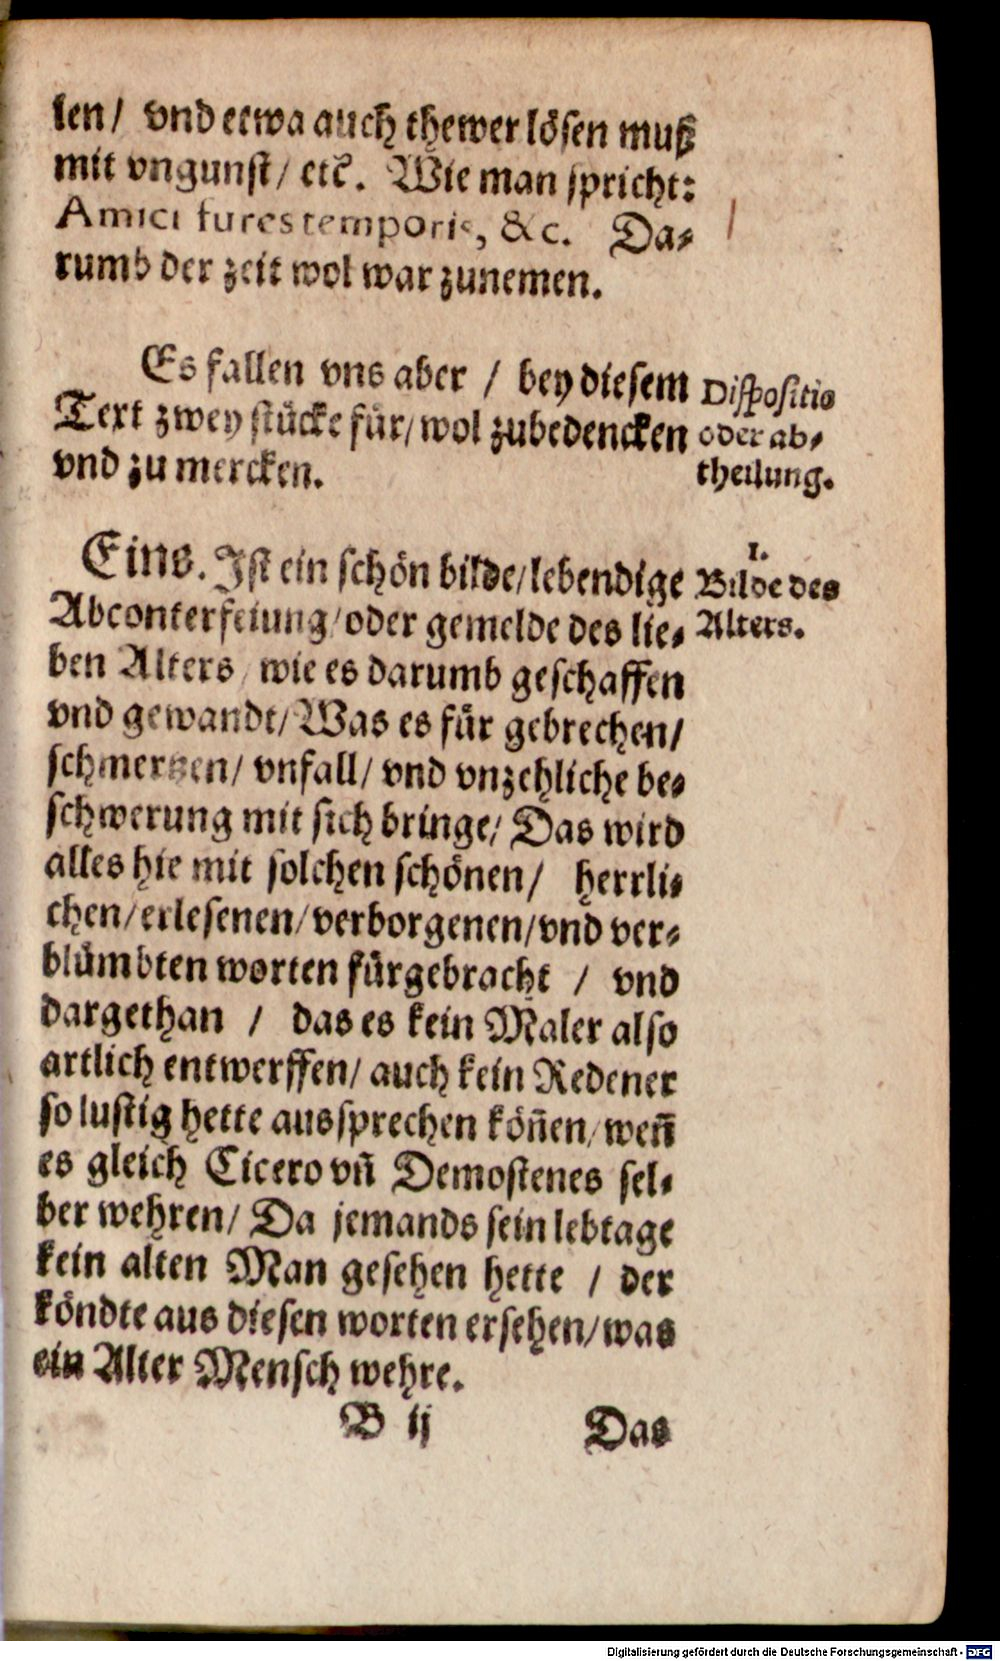 len/ vnd etwa auch thewer lösen muß
mit vngunst/ etc̃. Wie man spricht:
Amici fures temporis, &c. Da⸗
rumb der zeit wol war zunemen.
Es fallen vns aber / bey diesem
Text zwey stücke für/ wol zubedencken
vnd zu mercken.
Dispositio
oder ab⸗
theilung.
Eins. Ist ein schön bilde/ lebendige
Abconterfeiung/ oder gemelde des lie⸗
ben Alters/ wie es darumb geschaffen
vnd gewandt/ Was es für gebrechen/
schmertzen/ vnfall/ vnd vnzehliche be⸗
schwerung mit sich bringe/ Das wird
alles hie mit solchen schönen/ herrli⸗
chen/ erlesenen/ verborgenen/ vnd ver⸗
blümbten worten fürgebracht / vnd
dargethan / das es kein Maler also
artlich entwerffen/ auch kein Redener
so lustig hette aussprechen köñen/ weñ
es gleich Cicero vñ Demostenes sel⸗
ber wehren/ Da jemands sein lebtage
kein alten Man gesehen hette / der
köndte aus diesen worten ersehen/ was
ein Alter Mensch wehre.
1.
Bilde des
Alters.
B ij Das
Digitalisierung gefördert durch die Deutsche Forschungsgemeinschaft - DFG